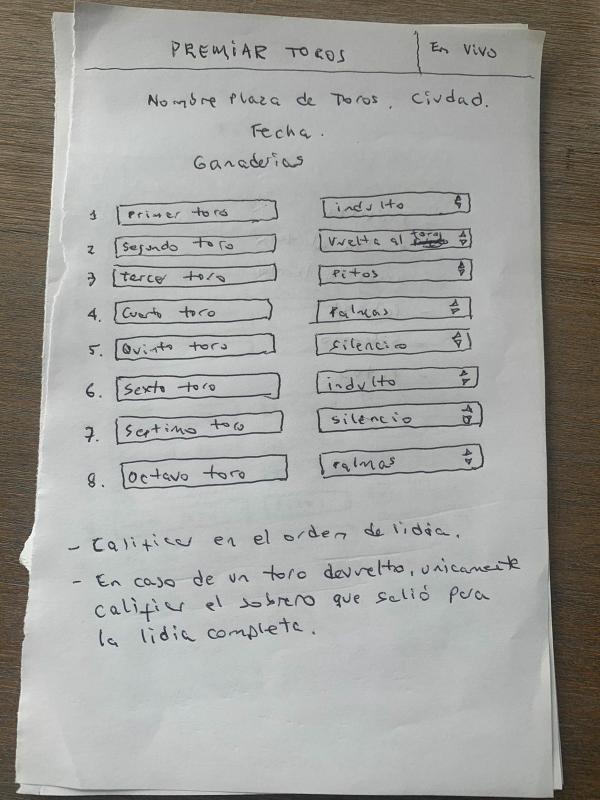 PREMIAR TOROS
En vivo
Nombre Plaza de Toros, Ciudad.
Fecha.
Ganaderias
1 Primer toro indulto
2 Segundo toro Vuelta al toro
3 Tercer toro Pitos
4. Cuarto toro Palmas
5. Quinto toro Silencio
6. Sexto toro indulto
7. Septimo toro Silencio
8. Octavo toro Palmas
- Calificar en el orden de lidia.
- En caso de un toro devuelto, unicamente
calificar el sobrero que salió para
la lidia completa.